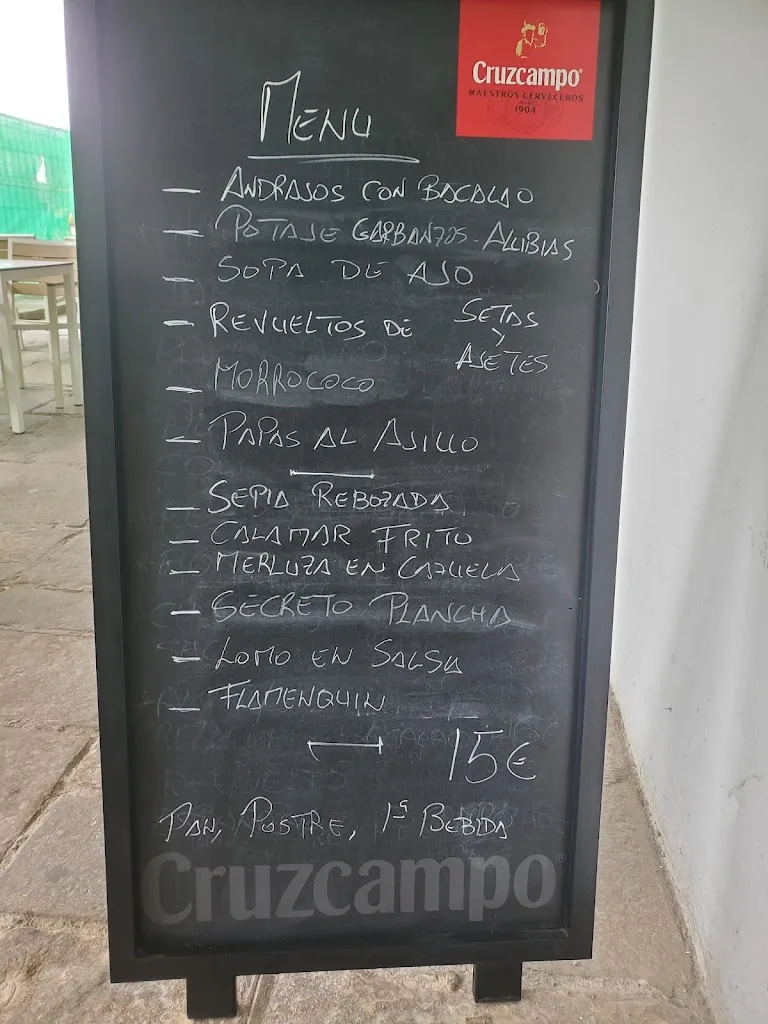 Cruzcampo
MAESTROS CERVECEROS
1904
MENU
— ANDRAJOS CON BACALAO
— POTAJE GARBANZOS - ALUBIAS
— SOPA DE AJO
— REVUELTOS DE SETAS
Y
AJETES
— MORROCOCO
— PAPAS AL AJILLO
— SEPIA REBOZADA
— CALAMAR FRITO
— MERLUZA EN CAZUELA
— SECRETO PLANCHA
— LOMO EN SALSA
— FLAMENQUIN
15€
PAN, POSTRE, 1ª BEBIDA
Cruzcampo